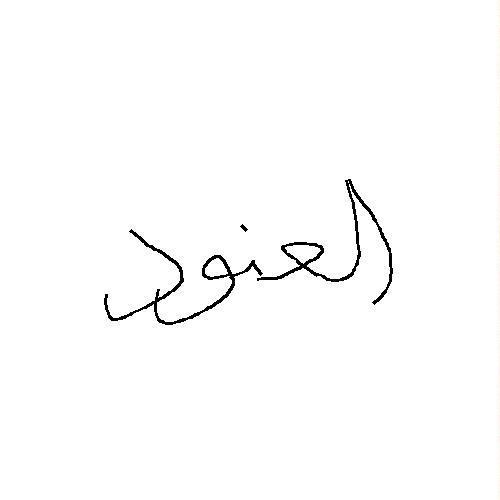 العنود